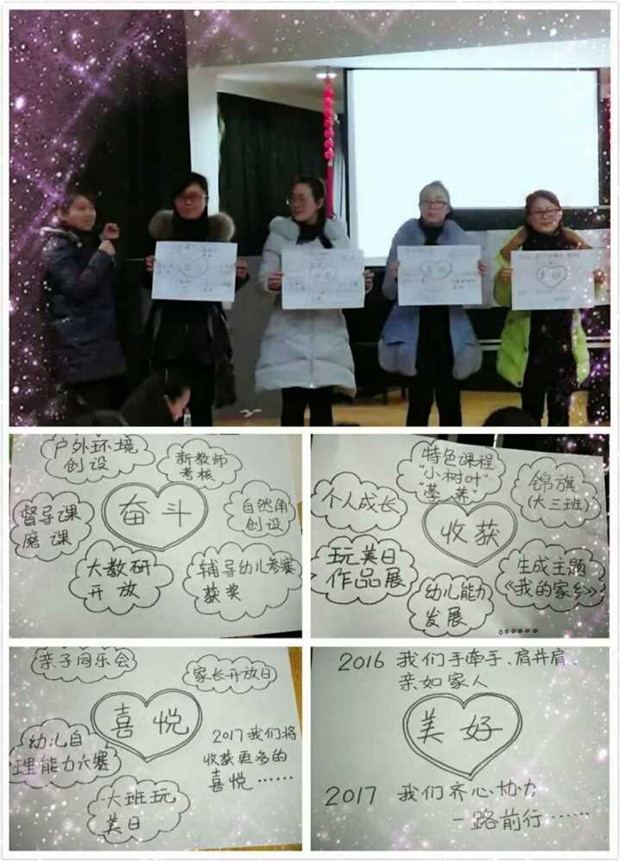 户外环境
创设
新教师
考核
奋斗
督导课
磨课
自然角
创设
大教研
开放
辅导幼儿参赛
获奖
特色课程
"小树叶"
锦旗
(大三班)
个人成长
收获
玩美日
作品展
生成主题
《我的家乡》
幼儿能力
发展
……
亲子同乐会
家长开放日
喜悦
幼儿自
理能力大赛
2017我们将
收获更多的
喜悦……
大班玩
美日
2016 我们手牵手、肩并肩
亲如家人
美好
2017 我们齐心协力
一路前行……